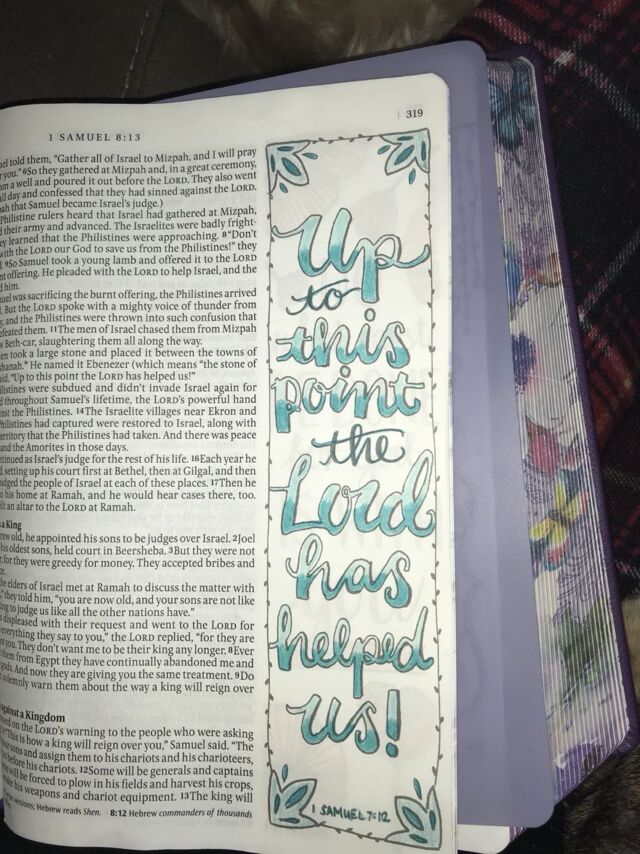 1 SAMUEL 8:13
319
told them, "Gather all of Israel to Mizpah, and I will pray
you." 6So they gathered at Mizpah and, in a great ceremony,
a well and poured it out before the LORD. They also went
all day and confessed that they had sinned against the LORD.
that Samuel became Israel's judge.)
Philistine rulers heard that Israel had gathered at Mizpah,
their army and advanced. The Israelites were badly
learned that the Philistines were approaching. 8"Don't
with the LORD our God to save us from the Philistines!" they
9So Samuel took a young lamb and offered it to the LORD
offering. He pleaded with the LORD to help Israel, and the
him.
was sacrificing the burnt offering, the Philistines arrived
But the LORD spoke with a mighty voice of thunder from
and the Philistines were thrown into such confusion that
defeated them. 11The men of Israel chased them from Mizpah
Beth-car, slaughtering them all along the way.
took a large stone and placed it between the towns of
He named it Ebenezer (which means "the stone of
"Up to this point the LORD has helped us!"
were subdued and didn't invade Israel again for
throughout Samuel's lifetime, the LORD's powerful hand
the Philistines. 14The Israelite villages near Ekron and
Philistines had captured were restored to Israel, along with
territory that the Philistines had taken. And there was peace
and the Amorites in those days.
as Israel's judge for the rest of his life. 16Each year he
setting up his court first at Bethel, then at Gilgal, and then
judged the people of Israel at each of these places. 17Then he
his home at Ramah, and he would hear cases there, too.
an altar to the LORD at Ramah.
a King
old, he appointed his sons to be judges over Israel. 2Joel
his oldest sons, held court in Beersheba. 3But they were not
for they were greedy for money. They accepted bribes and
elders of Israel met at Ramah to discuss the matter with
they told him, "you are now old, and your sons are not like
to judge us like all the other nations have."
displeased with their request and went to the LORD for
everything they say to you," the LORD replied, "for they are
you. They don't want me to be their king any longer. 8Ever
them from Egypt they have continually abandoned me and
gods. And now they are giving you the same treatment. 9Do
solemnly warn them about the way a king will reign over
against a Kingdom
on the LORD's warning to the people who were asking
"This is how a king will reign over you," Samuel said. "The
sons and assign them to his chariots and his charioteers,
before his chariots. 12Some will be generals and captains
will be forced to plow in his fields and harvest his crops,
his weapons and chariot equipment. 13The king will
versions; Hebrew reads Shen. 8:12 Hebrew commanders of thousands
Up
to
this
point
the
Lord
has
helped
us!
1 SAMUEL 7:12